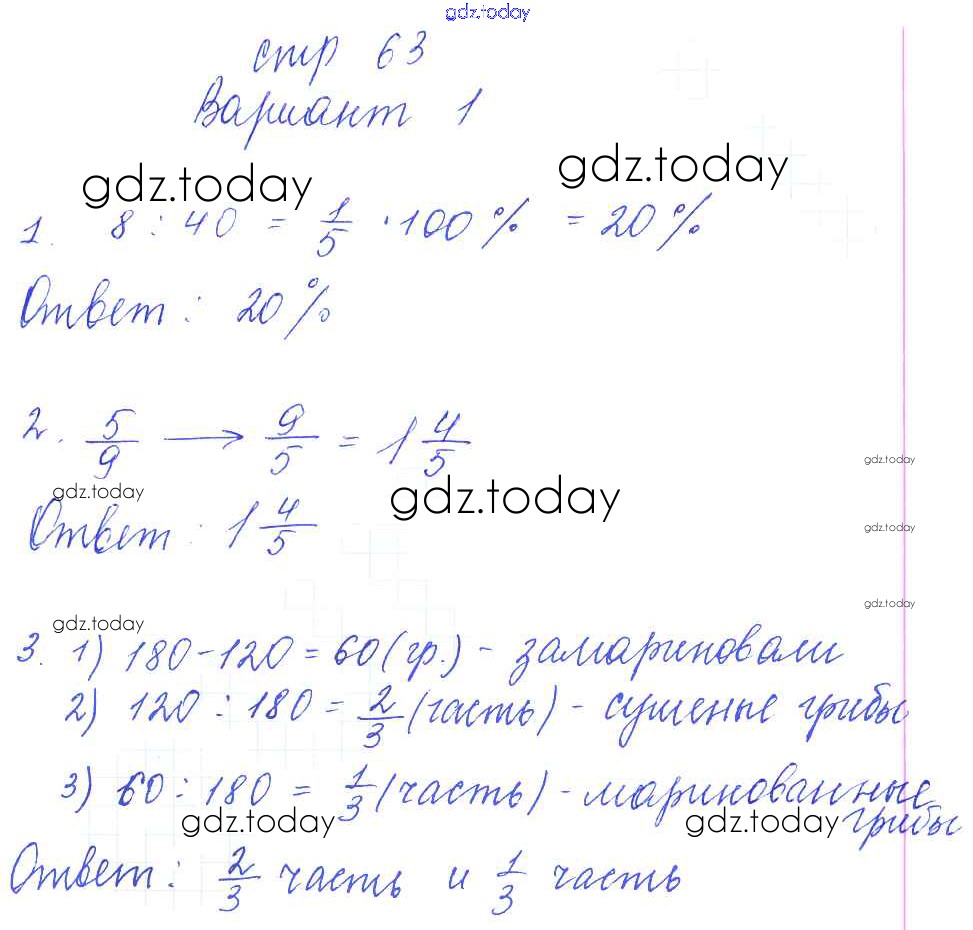 gdz.today
стр 63
Вариант 1
gdz.today gdz.today
1. 8 : 40 = 1/5 · 100 % = 20 %
Ответ : 20 %
2. 5/9 → 9/5 = 1 4/5
gdz.today
gdz.today gdz.today
Ответ : 1 4/5
gdz.today
gdz.today
gdz.today
3. 1) 180 - 120 = 60 (гр.) - замариновали
2) 120 : 180 = 2/3 (часть) - сушеные грибы
3) 60 : 180 = 1/3 (часть) - маринованные
грибы
gdz.today gdz.today
Ответ : 2/3 часть и 1/3 часть